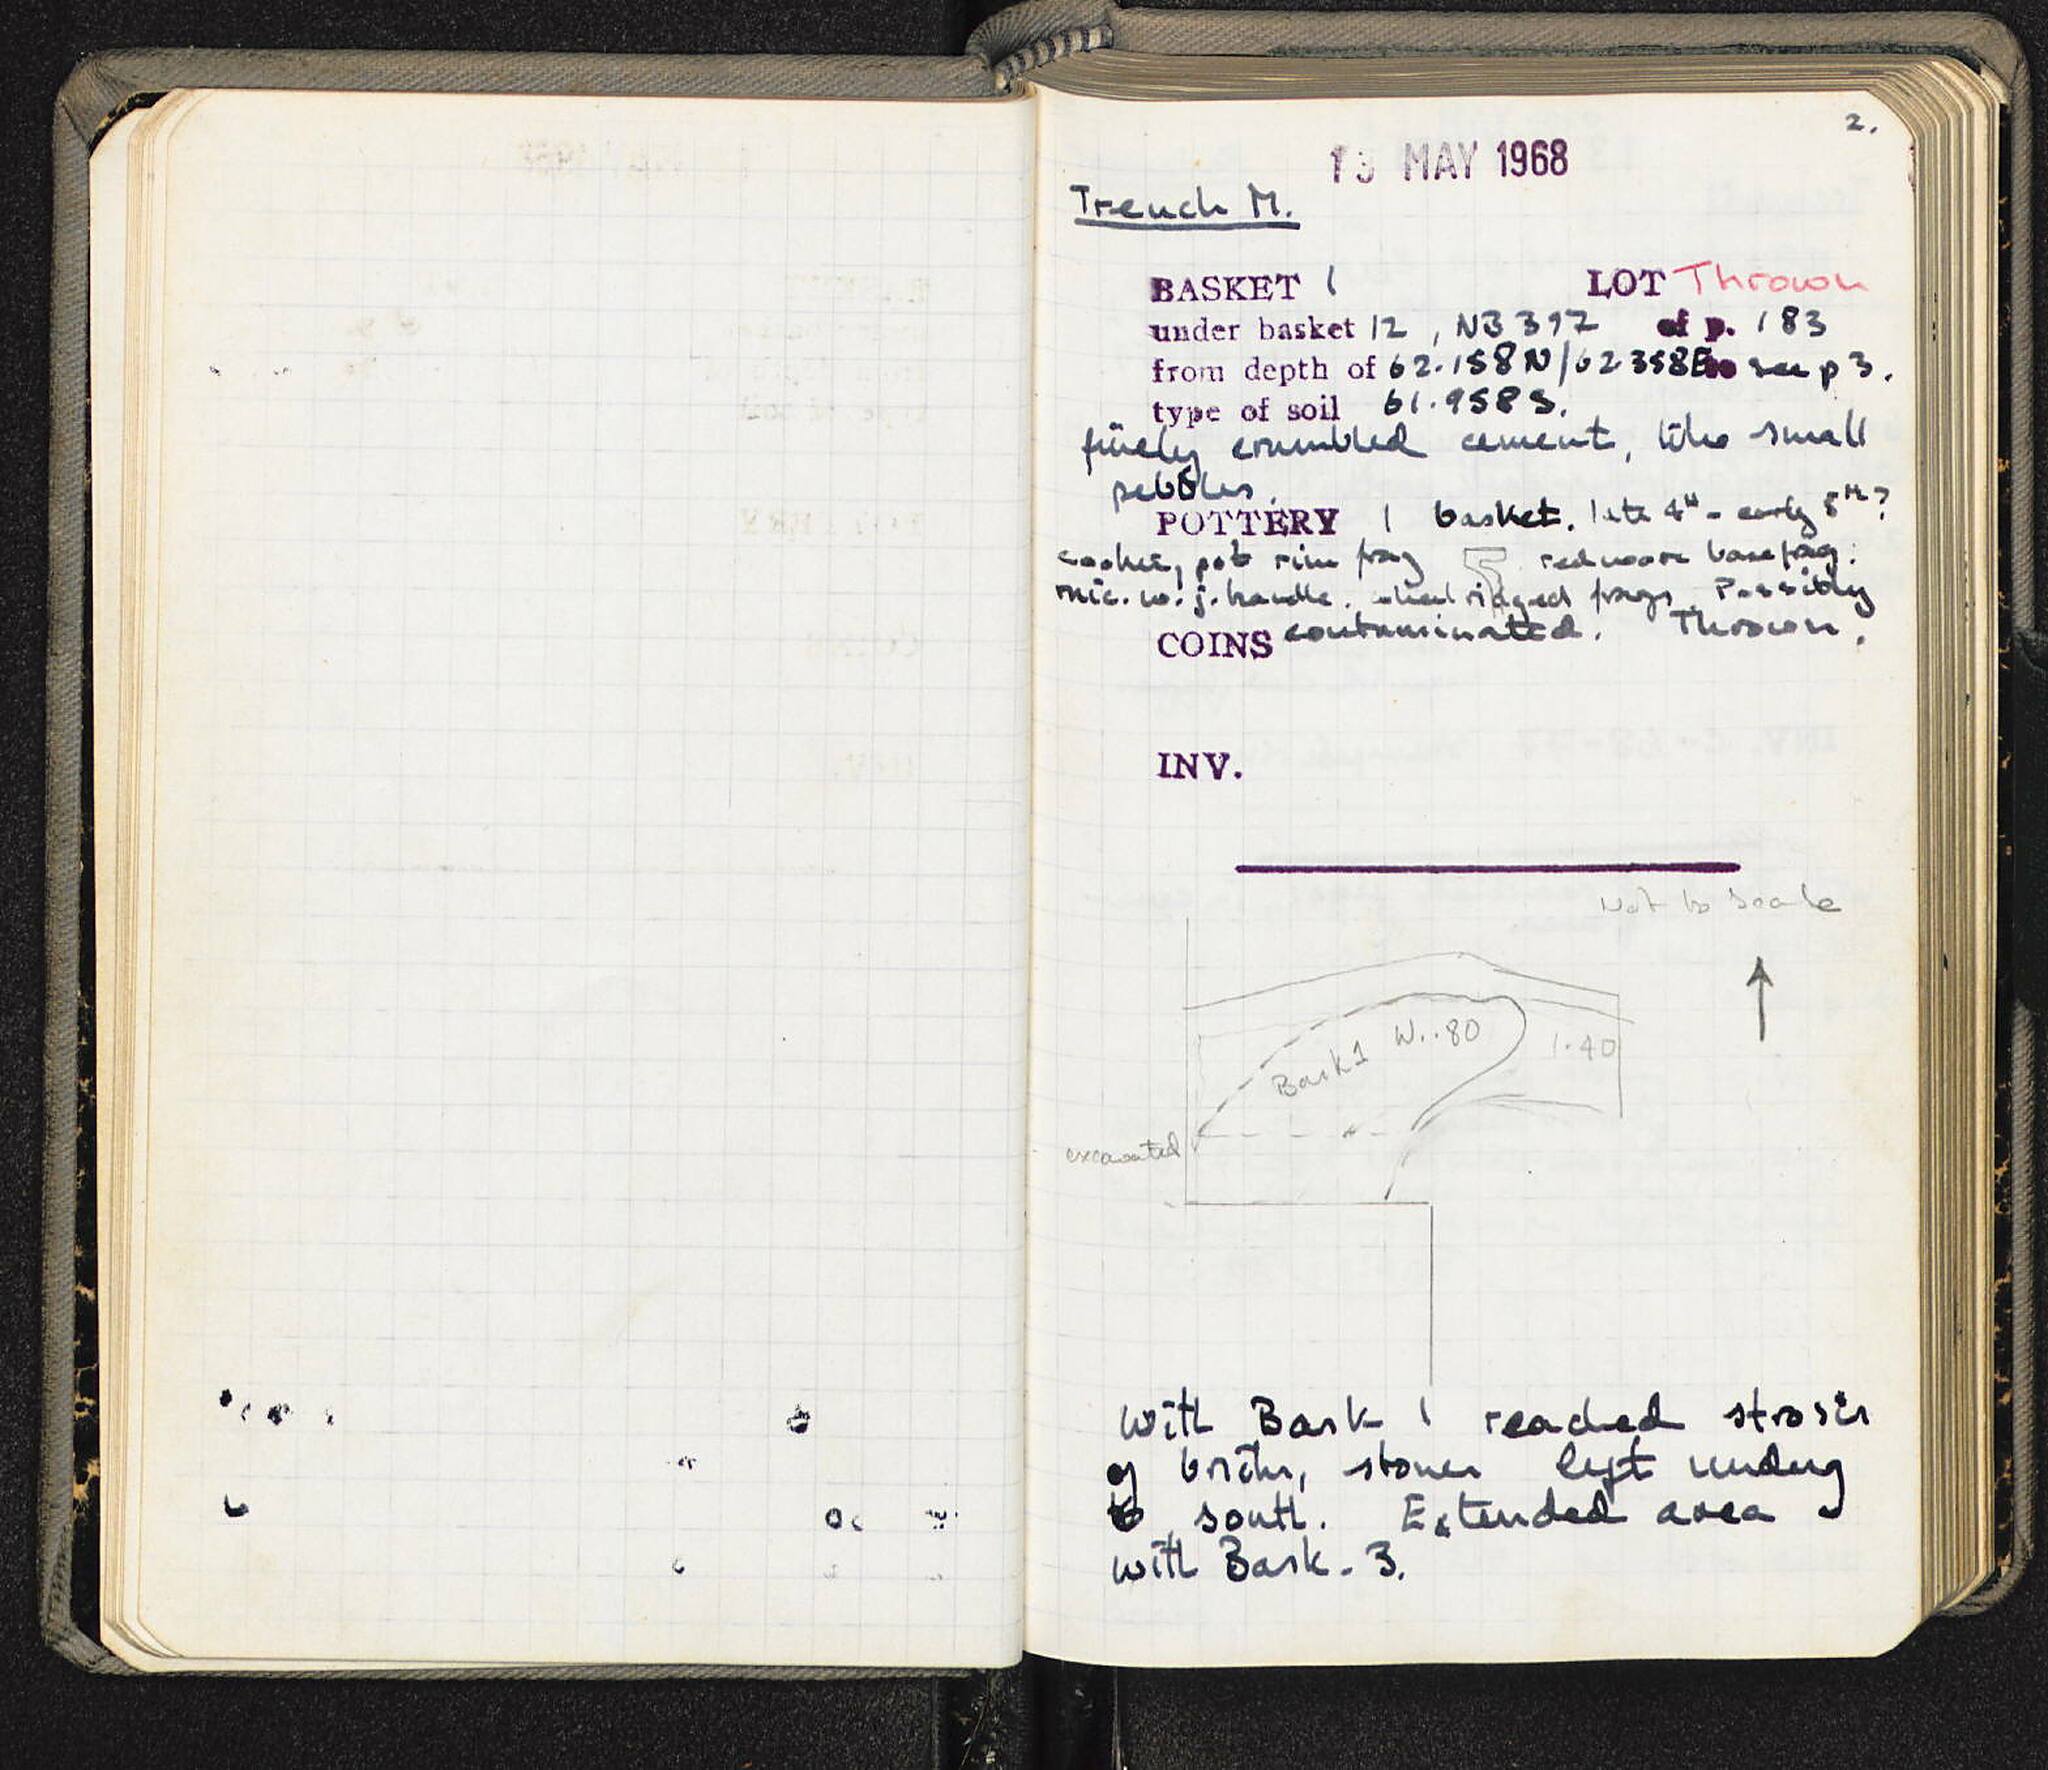 2.
13 MAY 1968
Trench M.
BASKET 1 LOT Thrown
under basket 12, NB 397 of p. 183
from depth of 62.158N/62.358E see p 3.
type of soil 61.958S.
finely crumbled cement, like small
pebbles.
POTTERY 1 basket. late 4th - early 5th?
cooking pot rim frag redware base frag.
mic. w. j. handle. wheel ridged frags. Possibly
contaminated. Thrown.
COINS
INV.
Not to scale
Bask 1 W. .80
1.40
excavated
With Bask 1 reached strosis
of bricks, stones left
to south. Extended area
with Bask. 3.